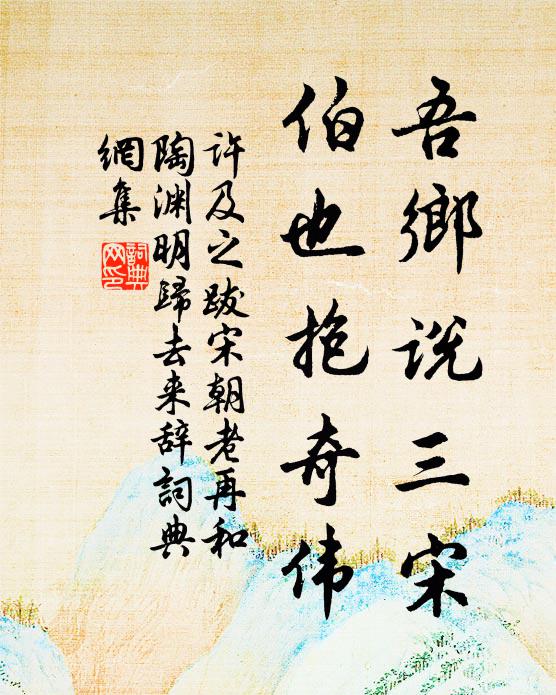 吾鄉说三宋
伯也抱奇伟
许及之跋宋朝老再和
陶渊明歸去来辞詞典
網集
詞典網印